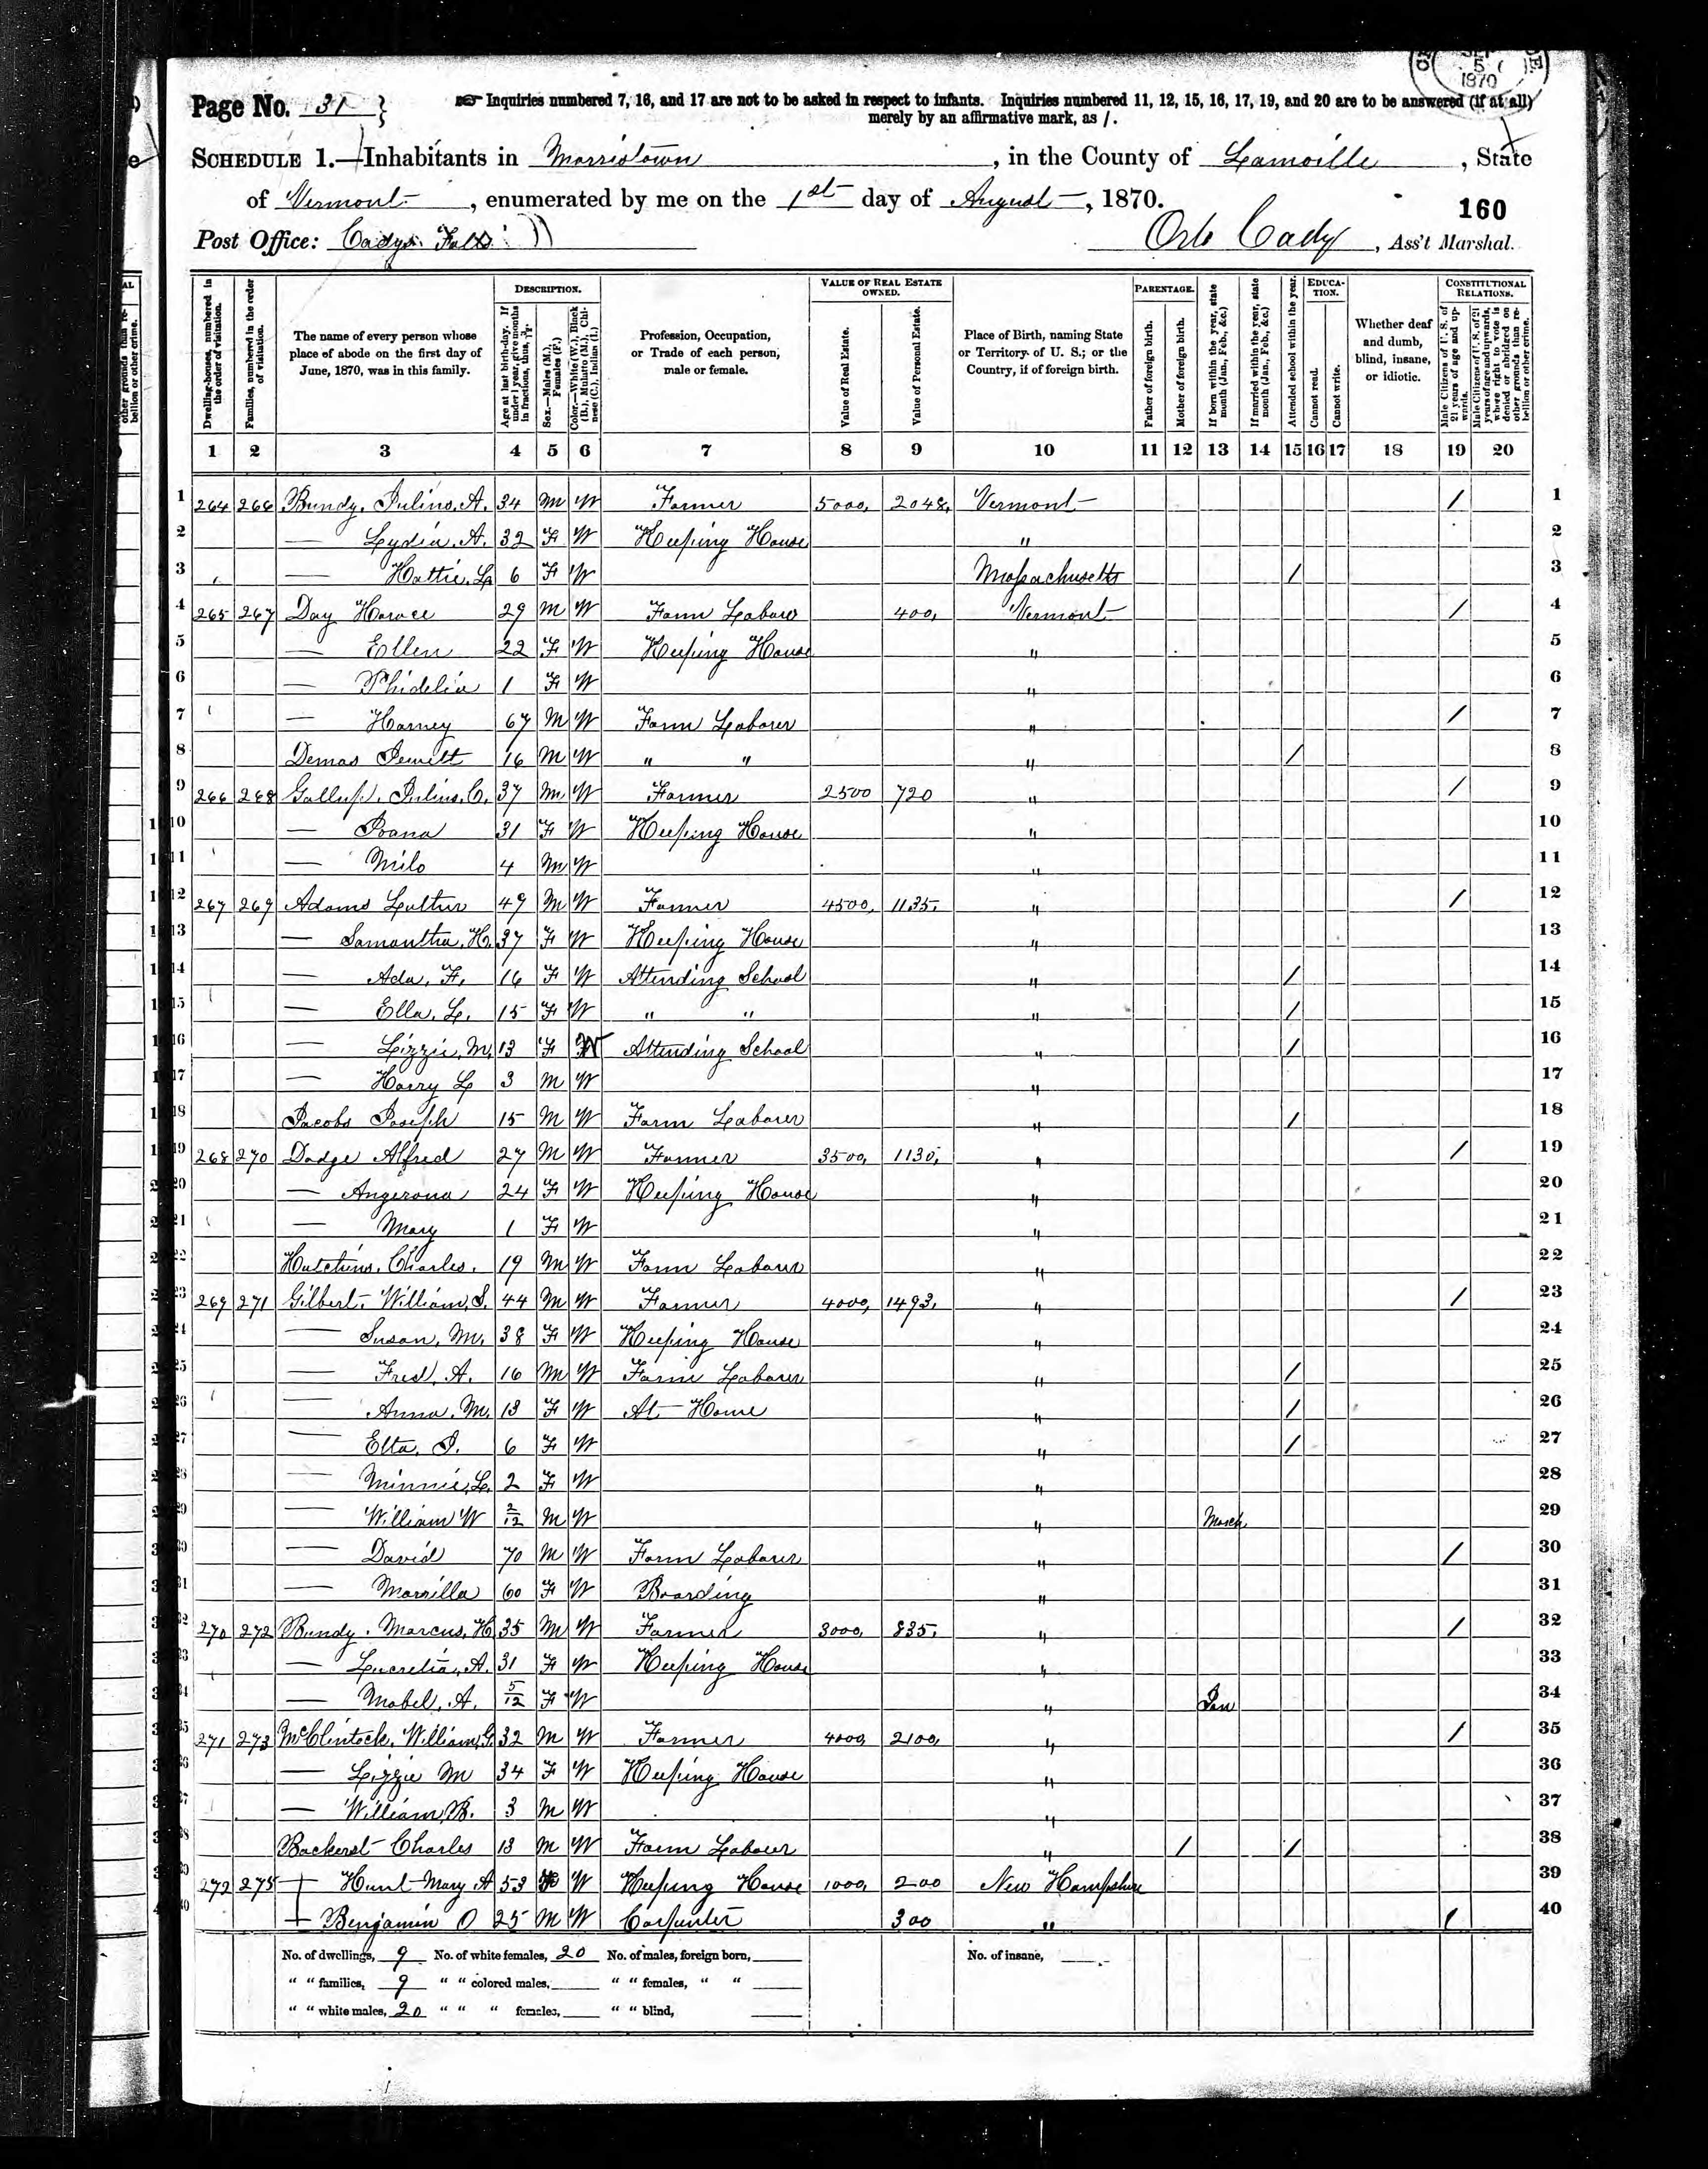 Page No. 31
Inquiries numbered 7, 16, and 17 are not to be asked in respect to infants. Inquiries numbered 11, 12, 15, 16, 17, 19, and 20 are to be answered (if at all)
merely by an affirmative mark, as /.
5
1870
SCHEDULE 1.—Inhabitants in Morristown, in the County of Lamoille, State
of Vermont, enumerated by me on the 1st day of August, 1870.
160
Post Office: Cadys Falls
Orlo Cady, Ass't Marshal.
Dwelling-houses, numbered in the order of visitation.
Families, numbered in the order of visitation.
The name of every person whose place of abode on the first day of June, 1870, was in this family.
DESCRIPTION.
Age at last birth-day. If under 1 year, give months in fractions, thus, 3/12.
Sex.—Males (M.), Females (F.)
Color.—White (W.), Black (B.), Mulatto (M.), Chinese (C.), Indian (I.)
Profession, Occupation, or Trade of each person, male or female.
VALUE OF REAL ESTATE OWNED.
Value of Real Estate.
Value of Personal Estate.
Place of Birth, naming State or Territory of U. S.; or the Country, if of foreign birth.
PARENTAGE.
Father of foreign birth.
Mother of foreign birth.
If born within the year, state month (Jan., Feb., &c.)
If married within the year, state month (Jan., Feb., &c.)
Attended school within the year.
EDUCATION.
Cannot read.
Cannot write.
Whether deaf and dumb, blind, insane, or idiotic.
CONSTITUTIONAL RELATIONS.
Male Citizens of U. S. of 21 years of age and upwards.
Male Citizens of U. S. of 21 years of age and upwards, where right to vote is denied or abridged on other grounds than rebellion or other crime.
1 2 3 4 5 6 7 8 9 10 11 12 13 14 15 16 17 18 19 20
1 264 266 Bundy, Julius, A. 34 M W Farmer 5000, 2048, Vermont / 1
2 — Lydia, A. 32 F W Keeping House " 2
3 — Hattie, L 6 F W Massachusetts / 3
4 265 267 Day Horace 29 M W Farm Laborer 400, Vermont / 4
5 — Ellen 22 F W Keeping House " 5
6 — Phidelia 1 F W " 6
7 — Harney 67 M W Farm Laborer " / 7
8 Demas Jewett 16 M W " " " / 8
9 266 268 Gallup, Julius, C. 37 M W Farmer 2500 720 " / 9
10 — Joana 31 F W Keeping House " 10
11 — Milo 4 M W " 11
12 267 269 Adams Luther 49 M W Farmer 4500, 1135, " / 12
13 — Samantha, H. 37 F W Keeping House " 13
14 — Ada, F. 16 F W Attending School " / 14
15 — Ella, L. 15 F W " " " / 15
16 — Lizzie, M. 13 F W Attending School " / 16
17 — Harry L 3 M W " 17
18 Jacobs Joseph 15 M W Farm Laborer " / 18
19 268 270 Dodge Alfred 27 M W Farmer 3500, 1130, " / 19
20 — Angerona 24 F W Keeping House " 20
21 — Mary 1 F W " 21
22 Hutchins, Charles. 19 M W Farm Laborer " 22
23 269 271 Gilbert, William, S. 44 M W Farmer 4000, 1493, " / 23
24 — Susan, M. 38 F W Keeping House " 24
25 — Fred, A. 16 M W Farm Laborer " / 25
26 — Anna, M. 13 F W At Home " / 26
27 — Etta, J. 6 F W " / 27
28 — Minnie, L. 2 F W " 28
29 — William W 2/12 M W " March 29
30 — David 70 M W Farm Laborer " / 30
31 — Marsilla 60 F W Boarding " 31
32 270 272 Bundy, Marcus, H. 35 M W Farmer 3000, 835, " / 32
33 — Lucretia, A. 31 F W Keeping House " 33
34 — Mabel, A. 5/12 F W " Jan 34
35 271 273 McClintock, William, G. 32 M W Farmer 4000, 2100, " / 35
36 — Lizzie M 34 F W Keeping House " 36
37 — William, B. 3 M W " 37
38 Backerst Charles 13 M W Farm Laborer " / / 38
39 272 275 Hunt Mary A 53 F W Keeping House 1000, 200 New Hampshire 39
40 — Benjamin O 25 M W Carpenter 300 " / 40
No. of dwellings, 9 No. of white females, 20 No. of males, foreign born, No. of insane,
" " families, 9 " " colored males, " " females, " "
" " white males, 20 " " " females, " " blind,